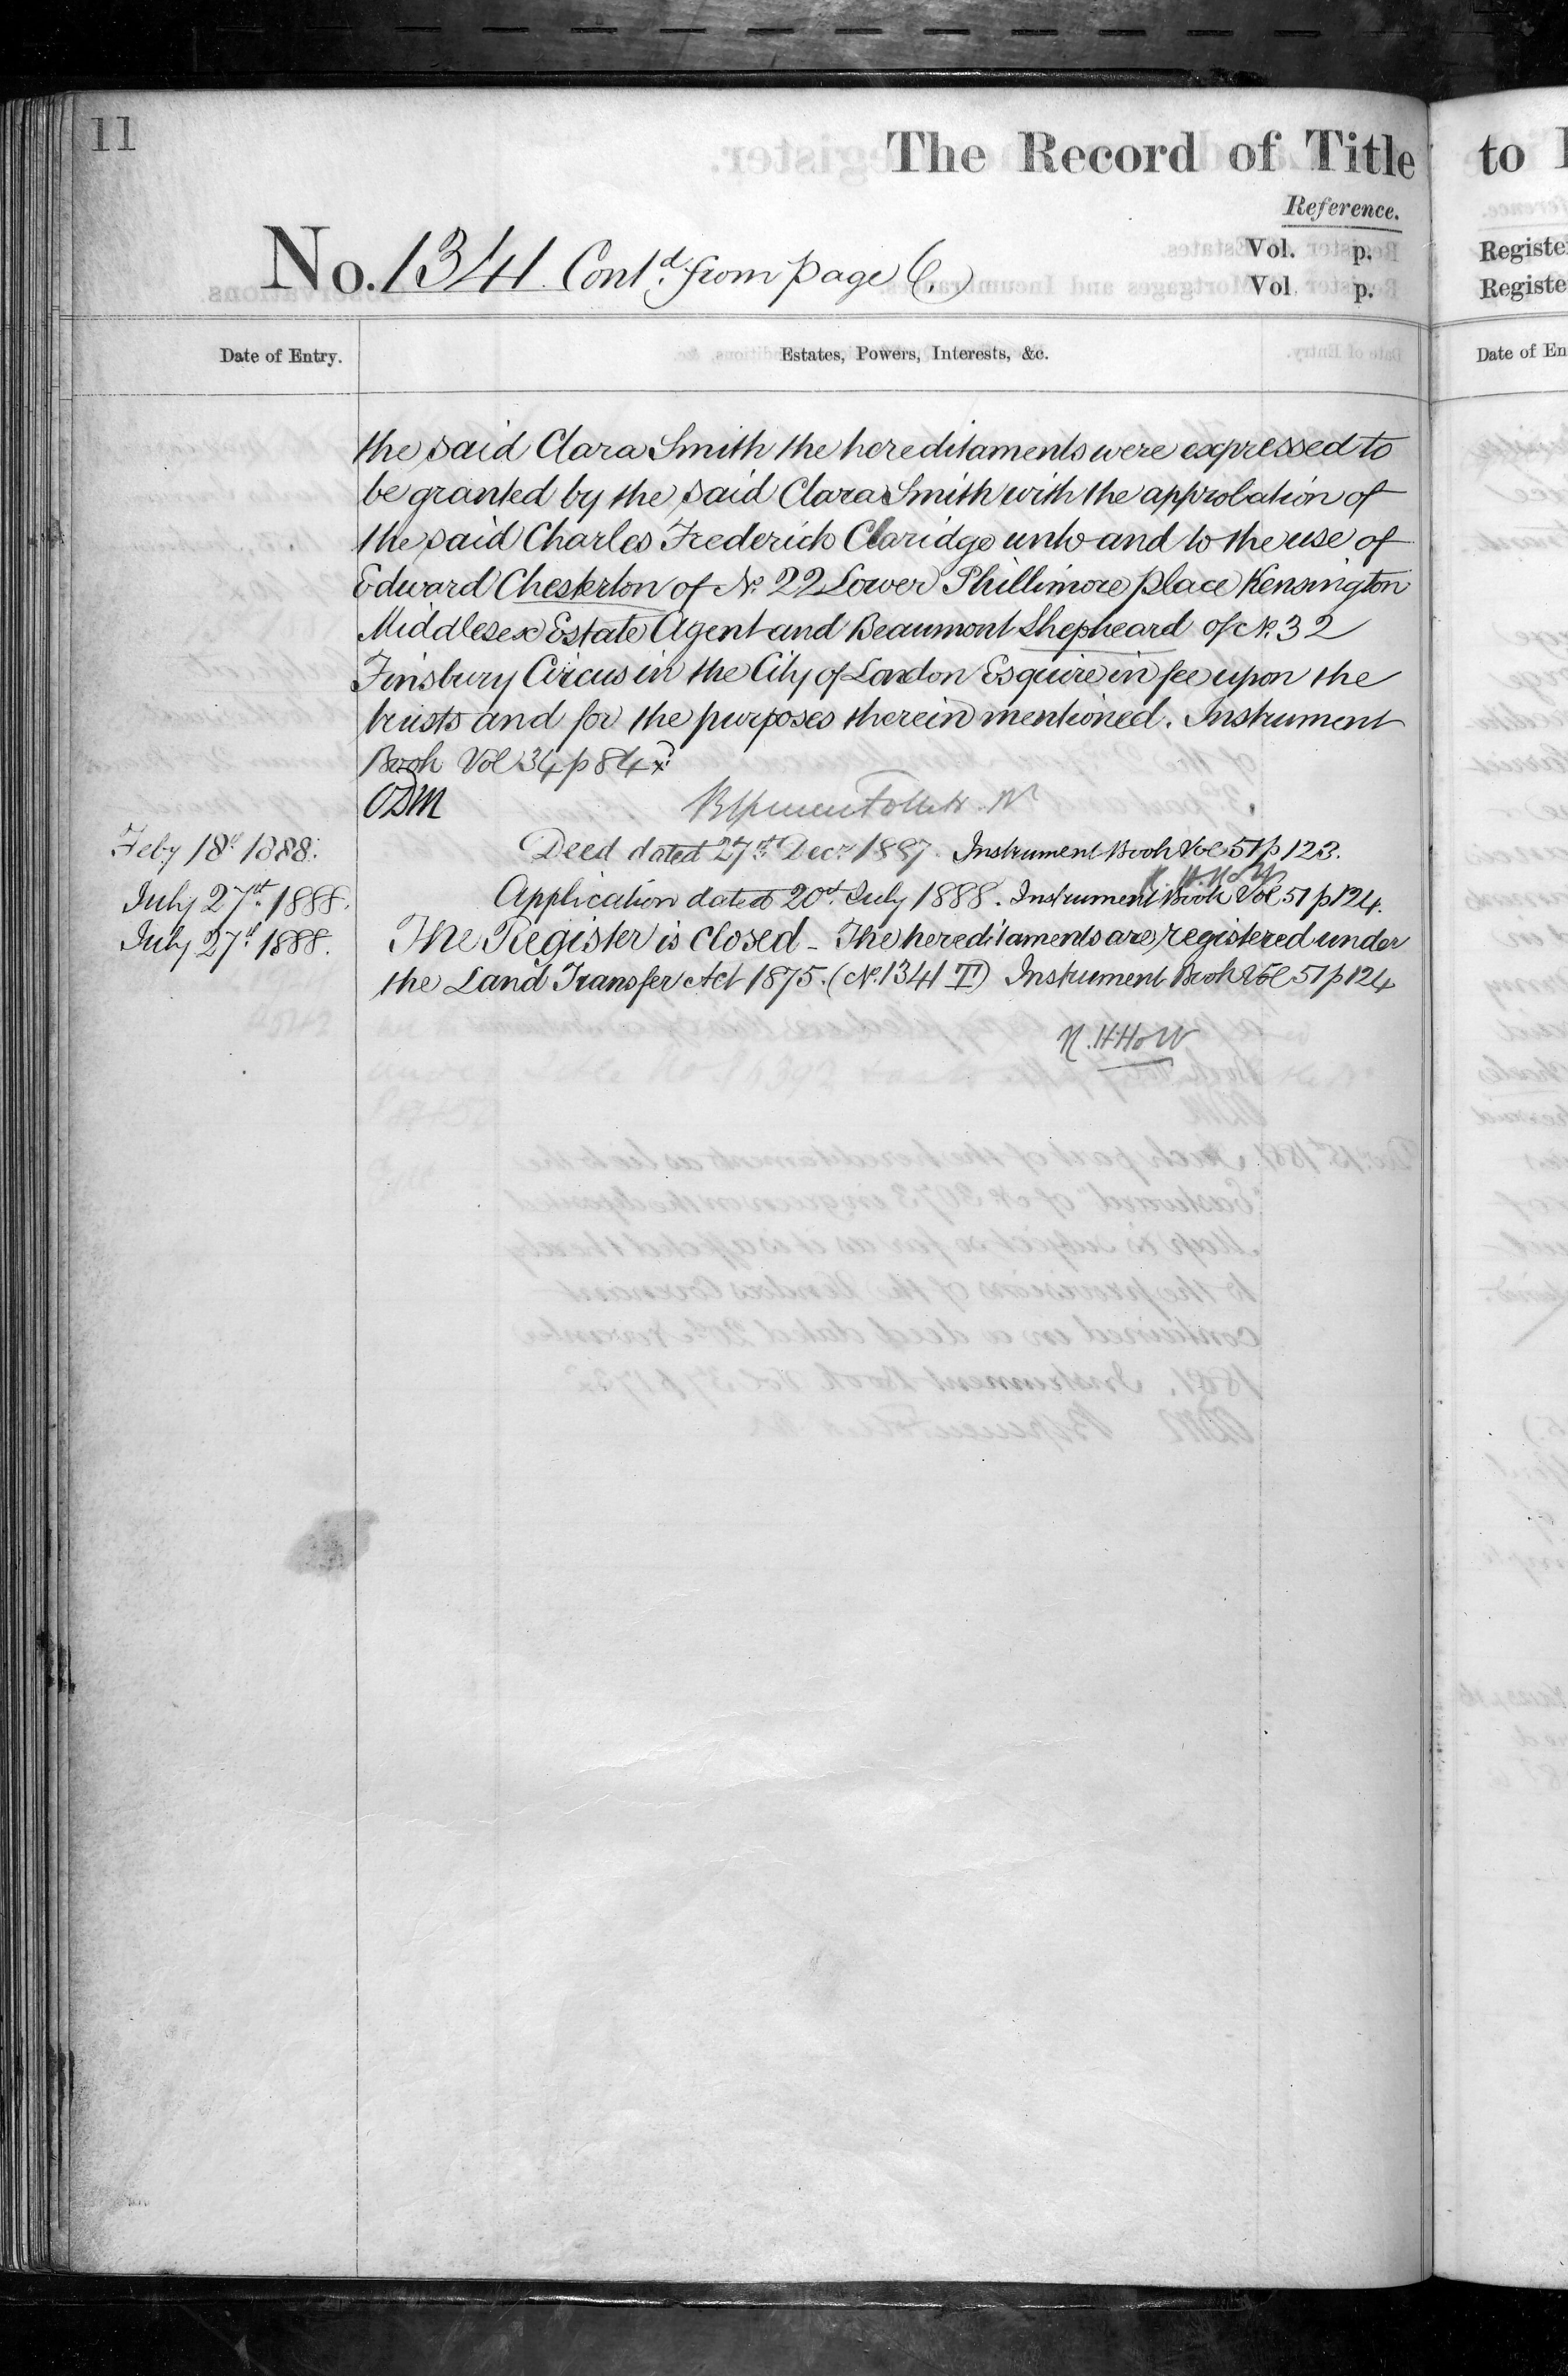 11
The Record of Title
Reference.
No. 1341 Contd. from page 6.
Vol. p.
Vol. p.
Date of Entry.
Estates, Powers, Interests, &c.
the said Clara Smith the hereditaments were expressed to
be granted by the said Clara Smith with the approbation of
the said Charles Frederick Claridge unto and to the use of
Edward Chesterton of No. 22 Lower Phillimore place Kensington
Middlesex Estate Agent and Beaumont Shepheard of No. 32
Finsbury Circus in the City of London Esquire in fee upon the
trusts and for the purposes therein mentioned. Instrument
Book Vol 34 p 84
ODM
Feby 18th 1888.
Deed dated 27th Decr 1887. Instrument Book Vol 51 p 123.
July 27th 1888.
Application dated 20th July 1888. Instrument Book Vol 51 p 124.
July 27th 1888.
The Register is closed – The hereditaments are registered under
the Land Transfer Act 1875. (No. 1341 T) Instrument Book Vol 51 p 124
to
Registe
Registe
Date of En